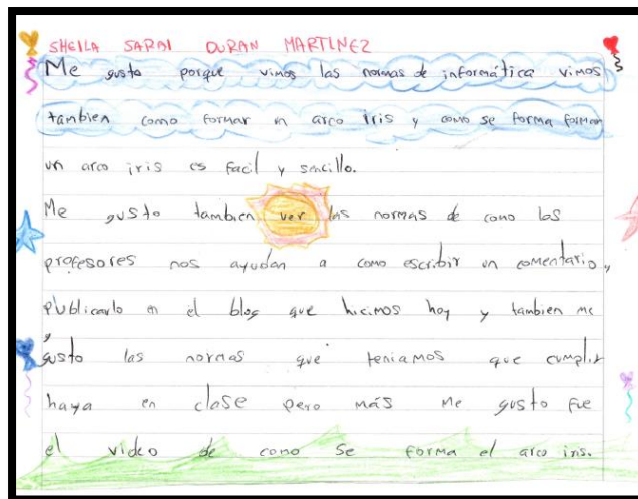 SHEILA SARAI DURAN MARTINEZ
Me gusto porque vimos las normas de informática vimos
tambien como formar un arco iris y como se forma formar
un arco iris es facil y sencillo.
Me gusto tambien ver las normas de como los
profesores nos ayudan a como escribir un comentario y
publicarlo en el blog que hicimos hoy y tambien me
gusto las normas que teniamos que cumplir
haya en clase pero más Me gusto fue
el video de como se forma el arco iris.